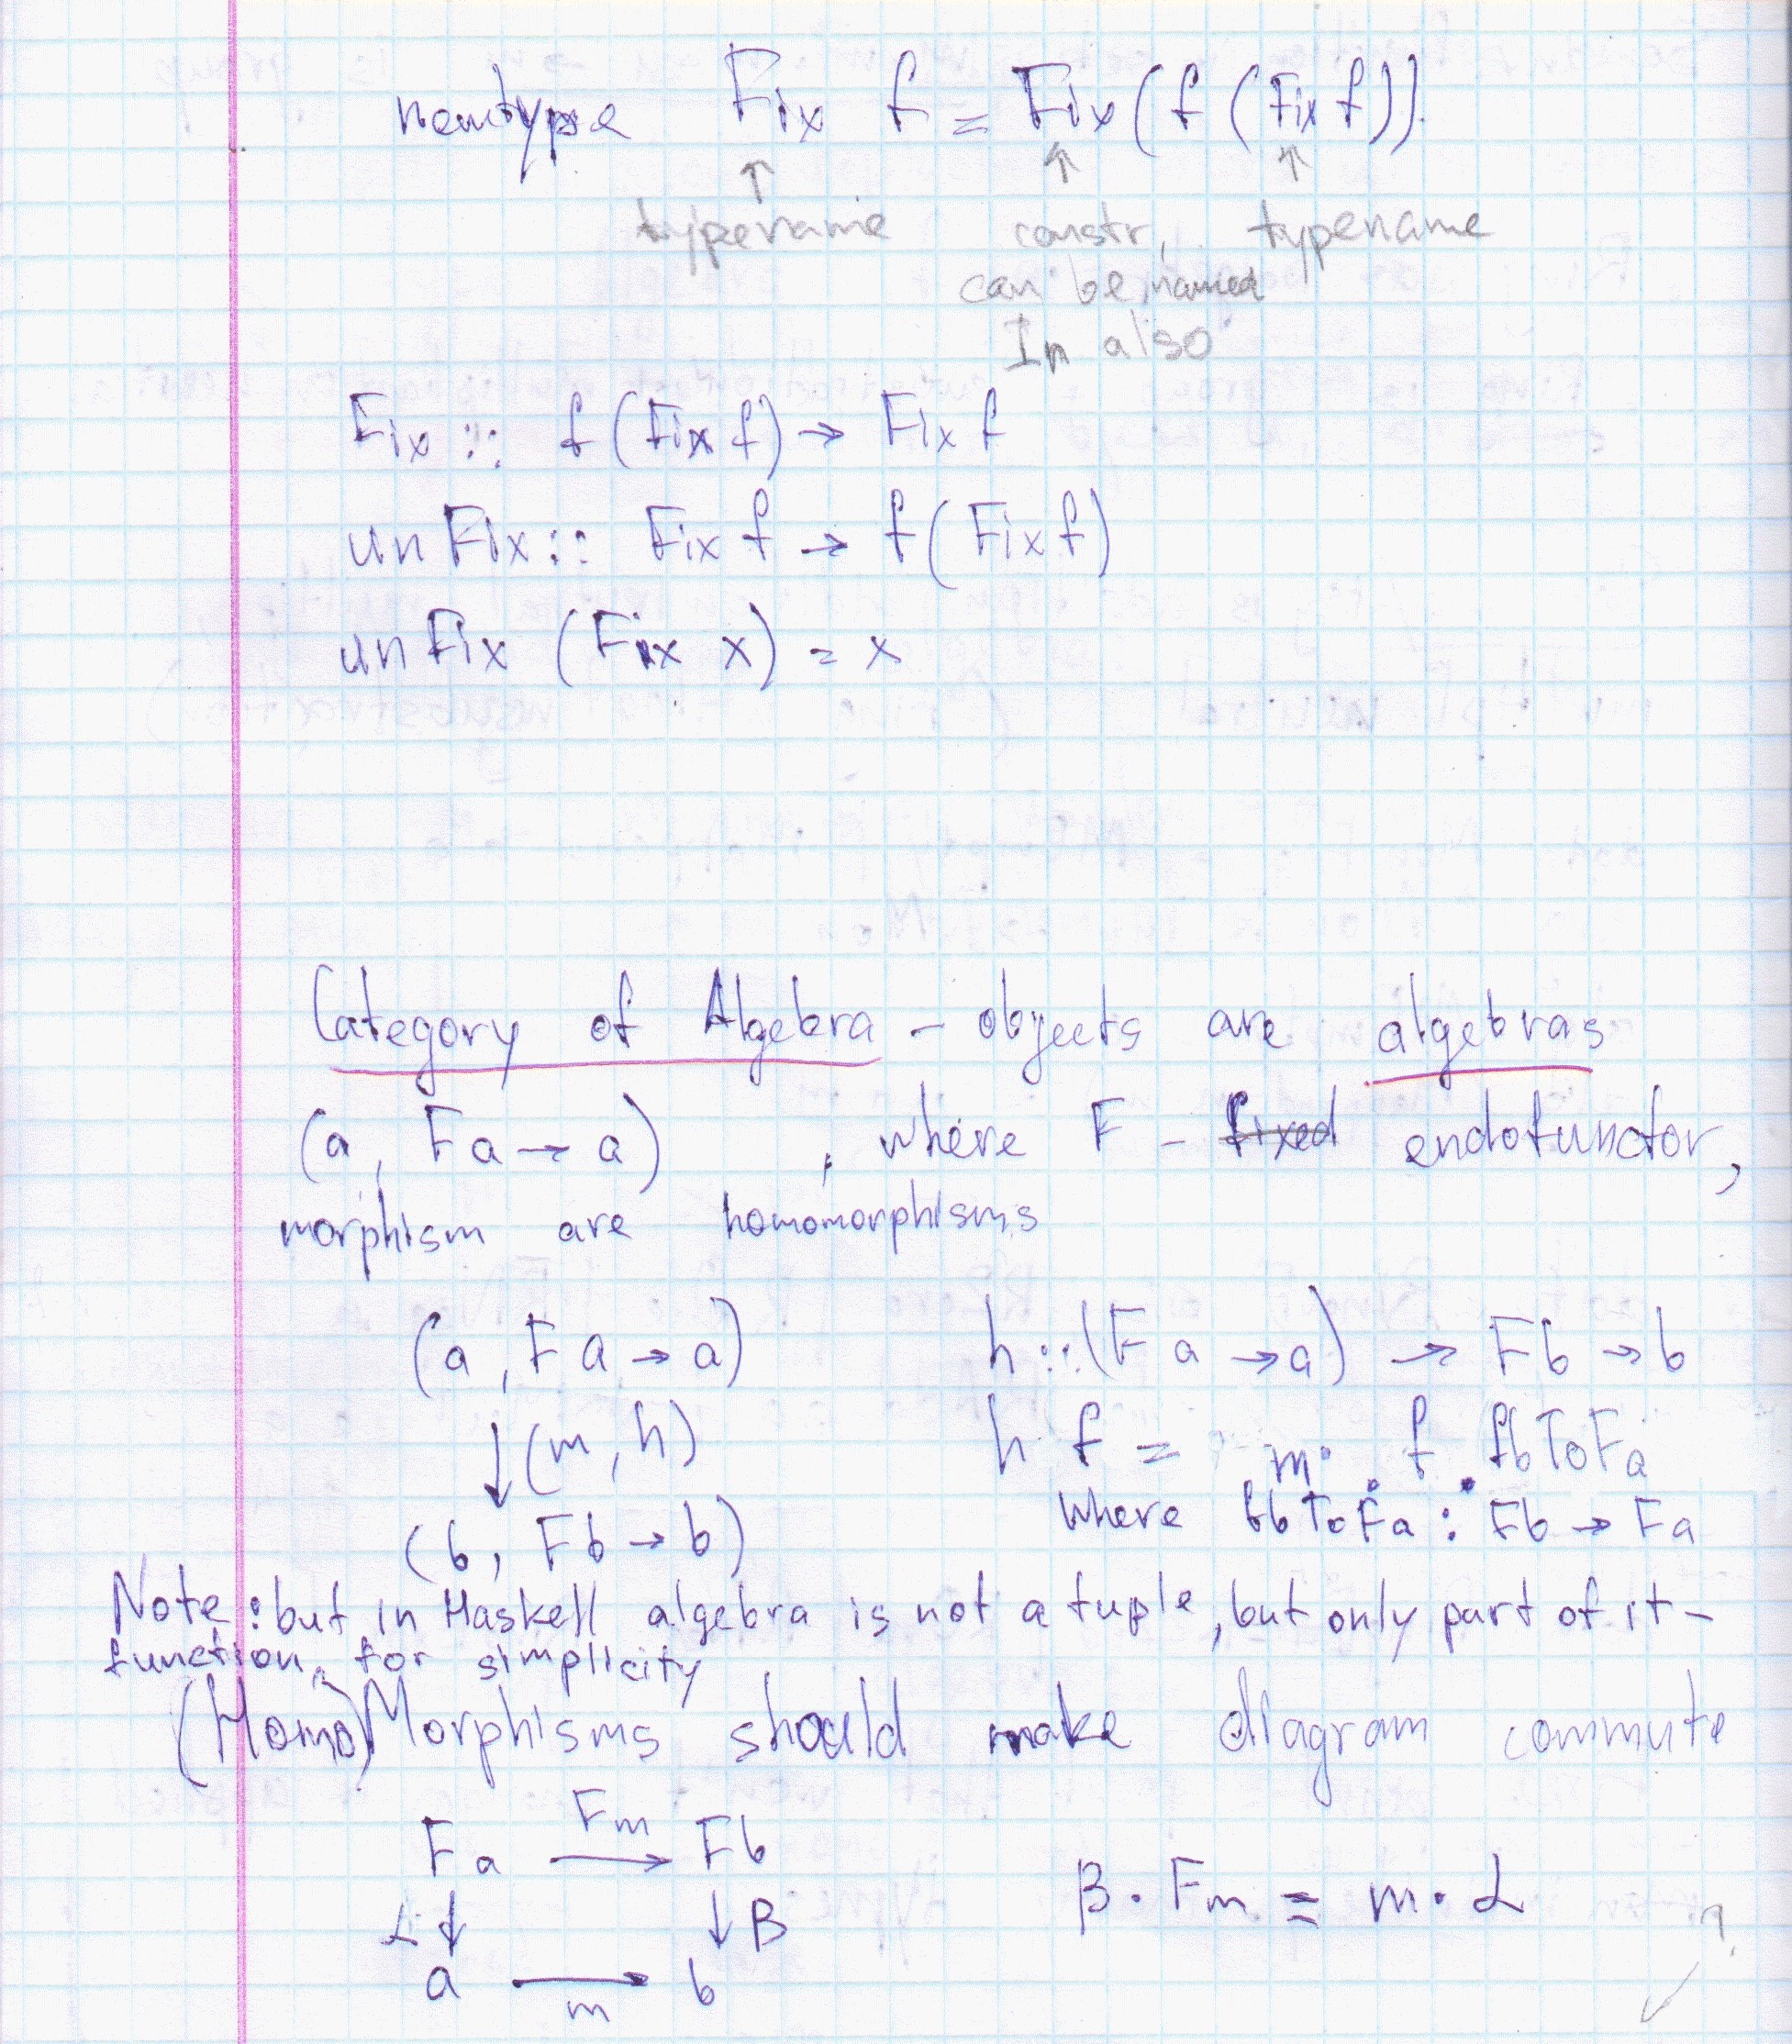 newtype Fix f = Fix (f (Fix f))
↑ ↑ ↑
typename constr, typename
can be named
In also
Fix :: f (Fix f) → Fix f
unFix :: Fix f → f (Fix f)
unFix (Fix x) = x
Category of Algebra – objects are algebras
(a, Fa → a) , where F – fixed endofunctor,
morphism are homomorphisms
(a, Fa → a) h :: (Fa → a) → Fb → b
↓ (m, h) h f = m . f . fbToFa
where fbToFa : Fb → Fa
(b, Fb → b)
Note: but in Haskell algebra is not a tuple, but only part of it –
function, for simplicity
(Homo)Morphisms should make diagram commute
Fa —Fm→ Fb
α ↓ ↓ β β · Fm = m · α
a —m→ b
?